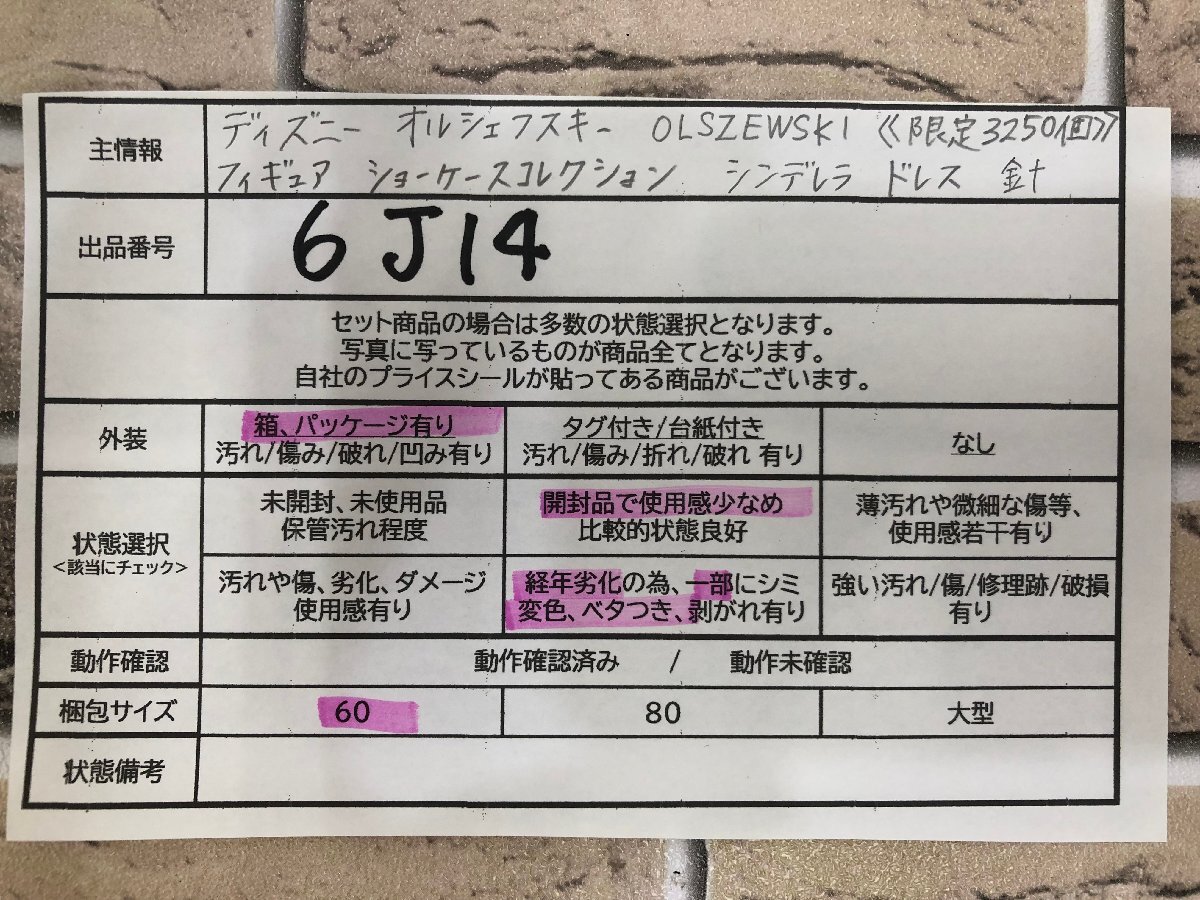 主情報
ディズニー オルシェフスキー OLSZEWSKI 《限定3250個》
フィギュア ショーケースコレクション シンデレラ ドレス 針
出品番号
6J14
セット商品の場合は多数の状態選択となります。
写真に写っているものが商品全てとなります。
自社のプライスシールが貼ってある商品がございます。
外装
箱、パッケージ有り
汚れ/傷み/破れ/凹み有り
タグ付き/台紙付き
汚れ/傷み/折れ/破れ 有り
なし
状態選択
<該当にチェック>
未開封、未使用品
保管汚れ程度
開封品で使用感少なめ
比較的状態良好
薄汚れや微細な傷等、
使用感若干有り
汚れや傷、劣化、ダメージ
使用感有り
経年劣化の為、一部にシミ
変色、ベタつき、剥がれ有り
強い汚れ/傷/修理跡/破損
有り
動作確認
動作確認済み / 動作未確認
梱包サイズ
60
80
大型
状態備考